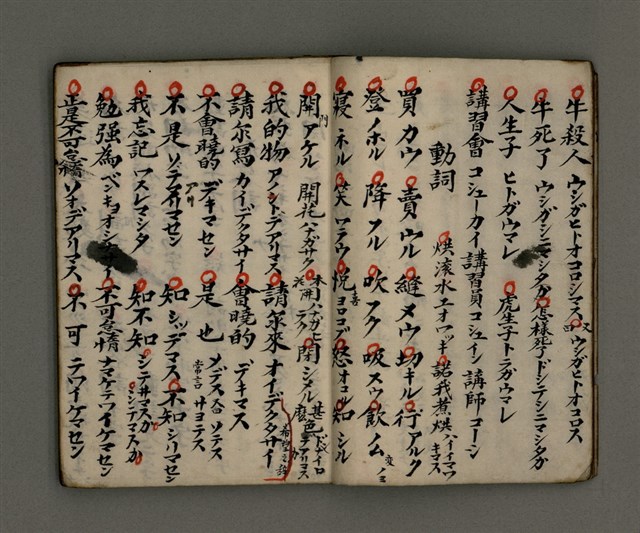 牛殺人 ウシガヒトオコロシマス 又 ウシガヒトオコロス
牛死了 ウシガシニマシタカ 怎樣死了 ドシテシニマシタカ
人生子 ヒトガウマレ 虎生子 トラガウマレ
講習會 コシューカイ 講習員 コシュイン 講師 コーシ
動詞 焿滚水 ユオワッギ 諾我煮焿 ハイイマワキマス
買 カウ 賣 ウル 縫 メウ 切 キル 行 アルク
登 ノホル 降 フル 吹 フク 吸 スウ 飲 ノム
寢 ネル 笑 ワラウ 悅喜 ヨロコブ 怒 オコル 知 シル
開門 アケル 開花 閉 シメル 甚麼色
我的物 請尔來 オイデクタサイ 希望之詞
請尔寫 カイデクタサイ 會曉的 デキマス
不會曉的 デキマセン 是也 常言 サヨデス
不是 ソデアリマセン 知 シッデマス 不知 シリマセン
我忘記 ワスレマシタ 知不知 シテイマスカ シンテマスカ
勉强為 不可怠惰 ナマケテワイケマセン
正是不可怠惰 ソオデアリマス 不可 テワイケマセン